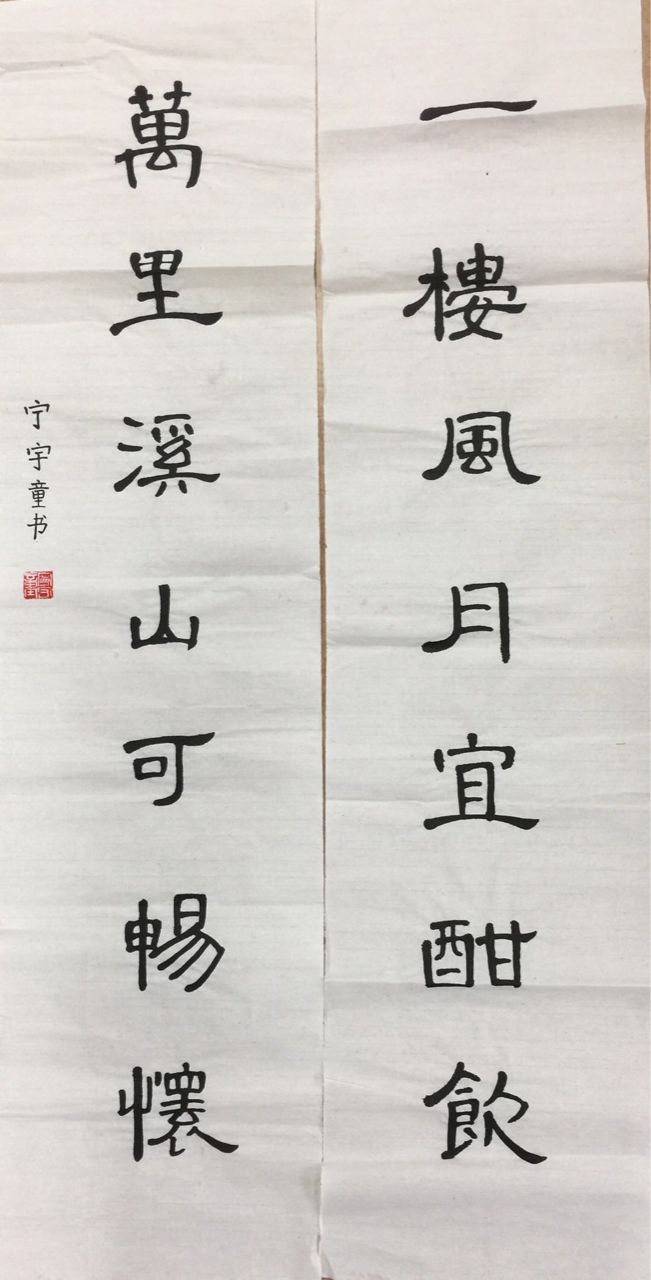 一樓風月宜酣飲
萬里溪山可暢懷
宁宇童书